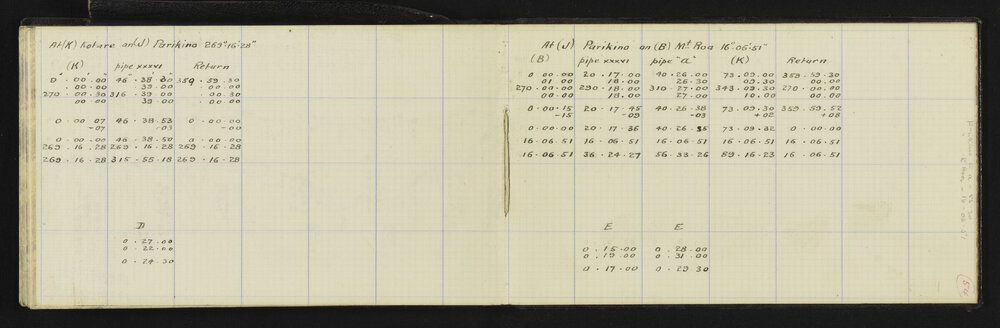 At (K) Kotare on (J) Parikino 269° 16' 28"
(K) pipe xxxvi Return
0 . 00 . 00 46 . 38 . 30 359 . 59 . 30
. 00 . 00 39 . 00 . 00 . 00
270 . 00 . 30 316 . 39 . 00 . 00 . 30
00 . 00 39 . 00 . 00 . 00
0 . 00 . 07 46 . 38 . 53 0 . 00 . 00
-07 -03 -00
0 . 00 . 00 46 . 38 . 50 0 . 00 . 00
269 . 16 . 28 269 . 16 . 28 269 . 16 . 28
269 . 16 . 28 315 . 55 . 18 269 . 16 . 28
D
0 . 27 . 00
0 . 22 . 00
0 . 24 . 30
At (J) Parikino on (B) Mt Roa 16° 06' 51"
(B) pipe xxxvi pipe "a" (K) Return
0 00 . 00 20 . 17 . 00 40 . 26 . 00 73 . 09 . 00 359 . 59 . 30
01 . 00 18 . 00 26 . 30 09 . 30 00 . 00
270 . 00 . 00 290 . 18 . 00 310 . 27 . 00 343 . 09 . 30 270 . 00 . 00
00 . 00 18 . 00 27 . 00 10 . 00 00 . 00
0 . 00 . 15 20 . 17 . 45 40 . 26 . 38 73 . 09 . 30 359 . 59 . 52
-15 -09 -03 +02 +08
0 . 00 . 00 20 . 17 . 36 40 . 26 . 35 73 . 09 . 32 0 . 00 . 00
16 . 06 . 51 16 . 06 . 51 16 . 06 . 51 16 . 06 . 51 16 . 06 . 51
16 . 06 . 51 36 . 24 . 27 56 . 33 . 26 89 . 16 . 23 16 . 06 . 51
E E
0 . 15 . 00 0 . 28 . 00
0 . 19 . 00 0 . 31 . 00
0 . 17 . 00 0 . 29 30